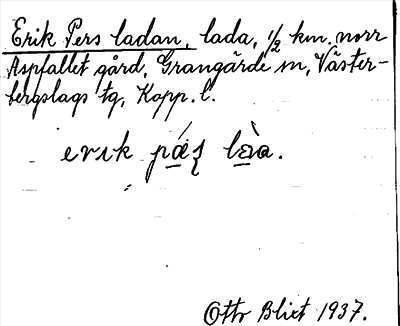 Erik Pers ladan, lada, 1/2 km. norr
Aspfallet gård, Grangärde sn, Väster-
bergslags tg, Kopp. l.
Otto Blixt 1937.